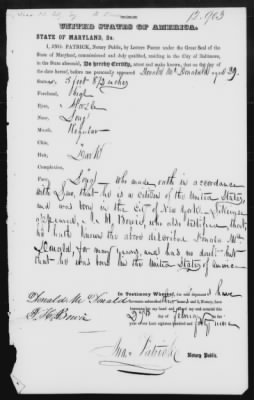 12.903
UNITED STATES OF AMERICA.
STATE OF MARYLAND, Ss:
I, JNO. PATRICK, Notary Public, by Letters Patent under the Great Seal of the
State of Maryland, commissioned and duly qualified, residing in the City of Baltimore,
in the State aforesaid, Do hereby Certify, attest and make known, that on the day of
the date hereof, before me personally appeared Donald McDonald aged 39
years 5 feet 8 1/2 inches
Forehead High
Eyes,
Nose, Long
Mouth, Regular
Chin,
Hair, Dark
Complexion,
Face, Long who made oath in accordance
with Law, that he is a citizen of the United States,
and was born in the City of New York
appeared H. Bowie, who also testifies that
he hath known the above described Donald Mc
Donald for many years, and has no doubt but
that he was born in the United States of America
In Testimony Whereof, the deponents have
Donald McDonald
hereunto my hand and Notarial Seal, this
day of February
year of our Lord eighteen hundred and forty nine
Jno. Patrick
Notary Public.